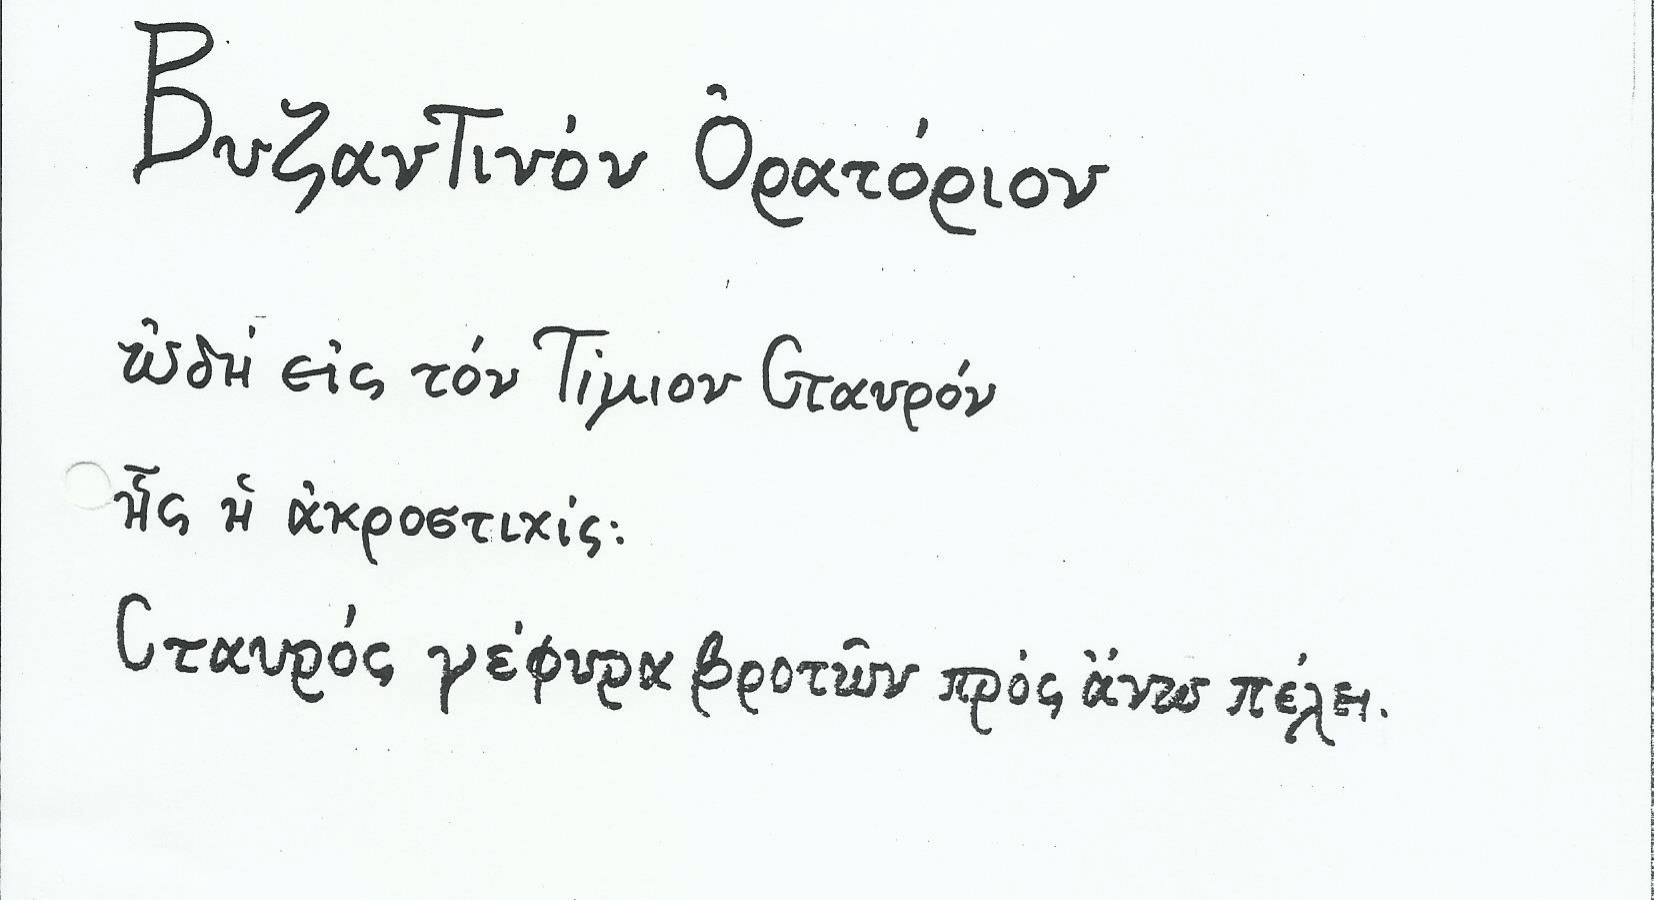 Βυζαντινόν Ὀρατόριον
ὠδή εἰς τόν Τίμιον Σταυρόν
ἧς ἡ ἀκροστιχίς:
Σταυρός γέφυρα βροτῶν πρός ἄνω πέλει.